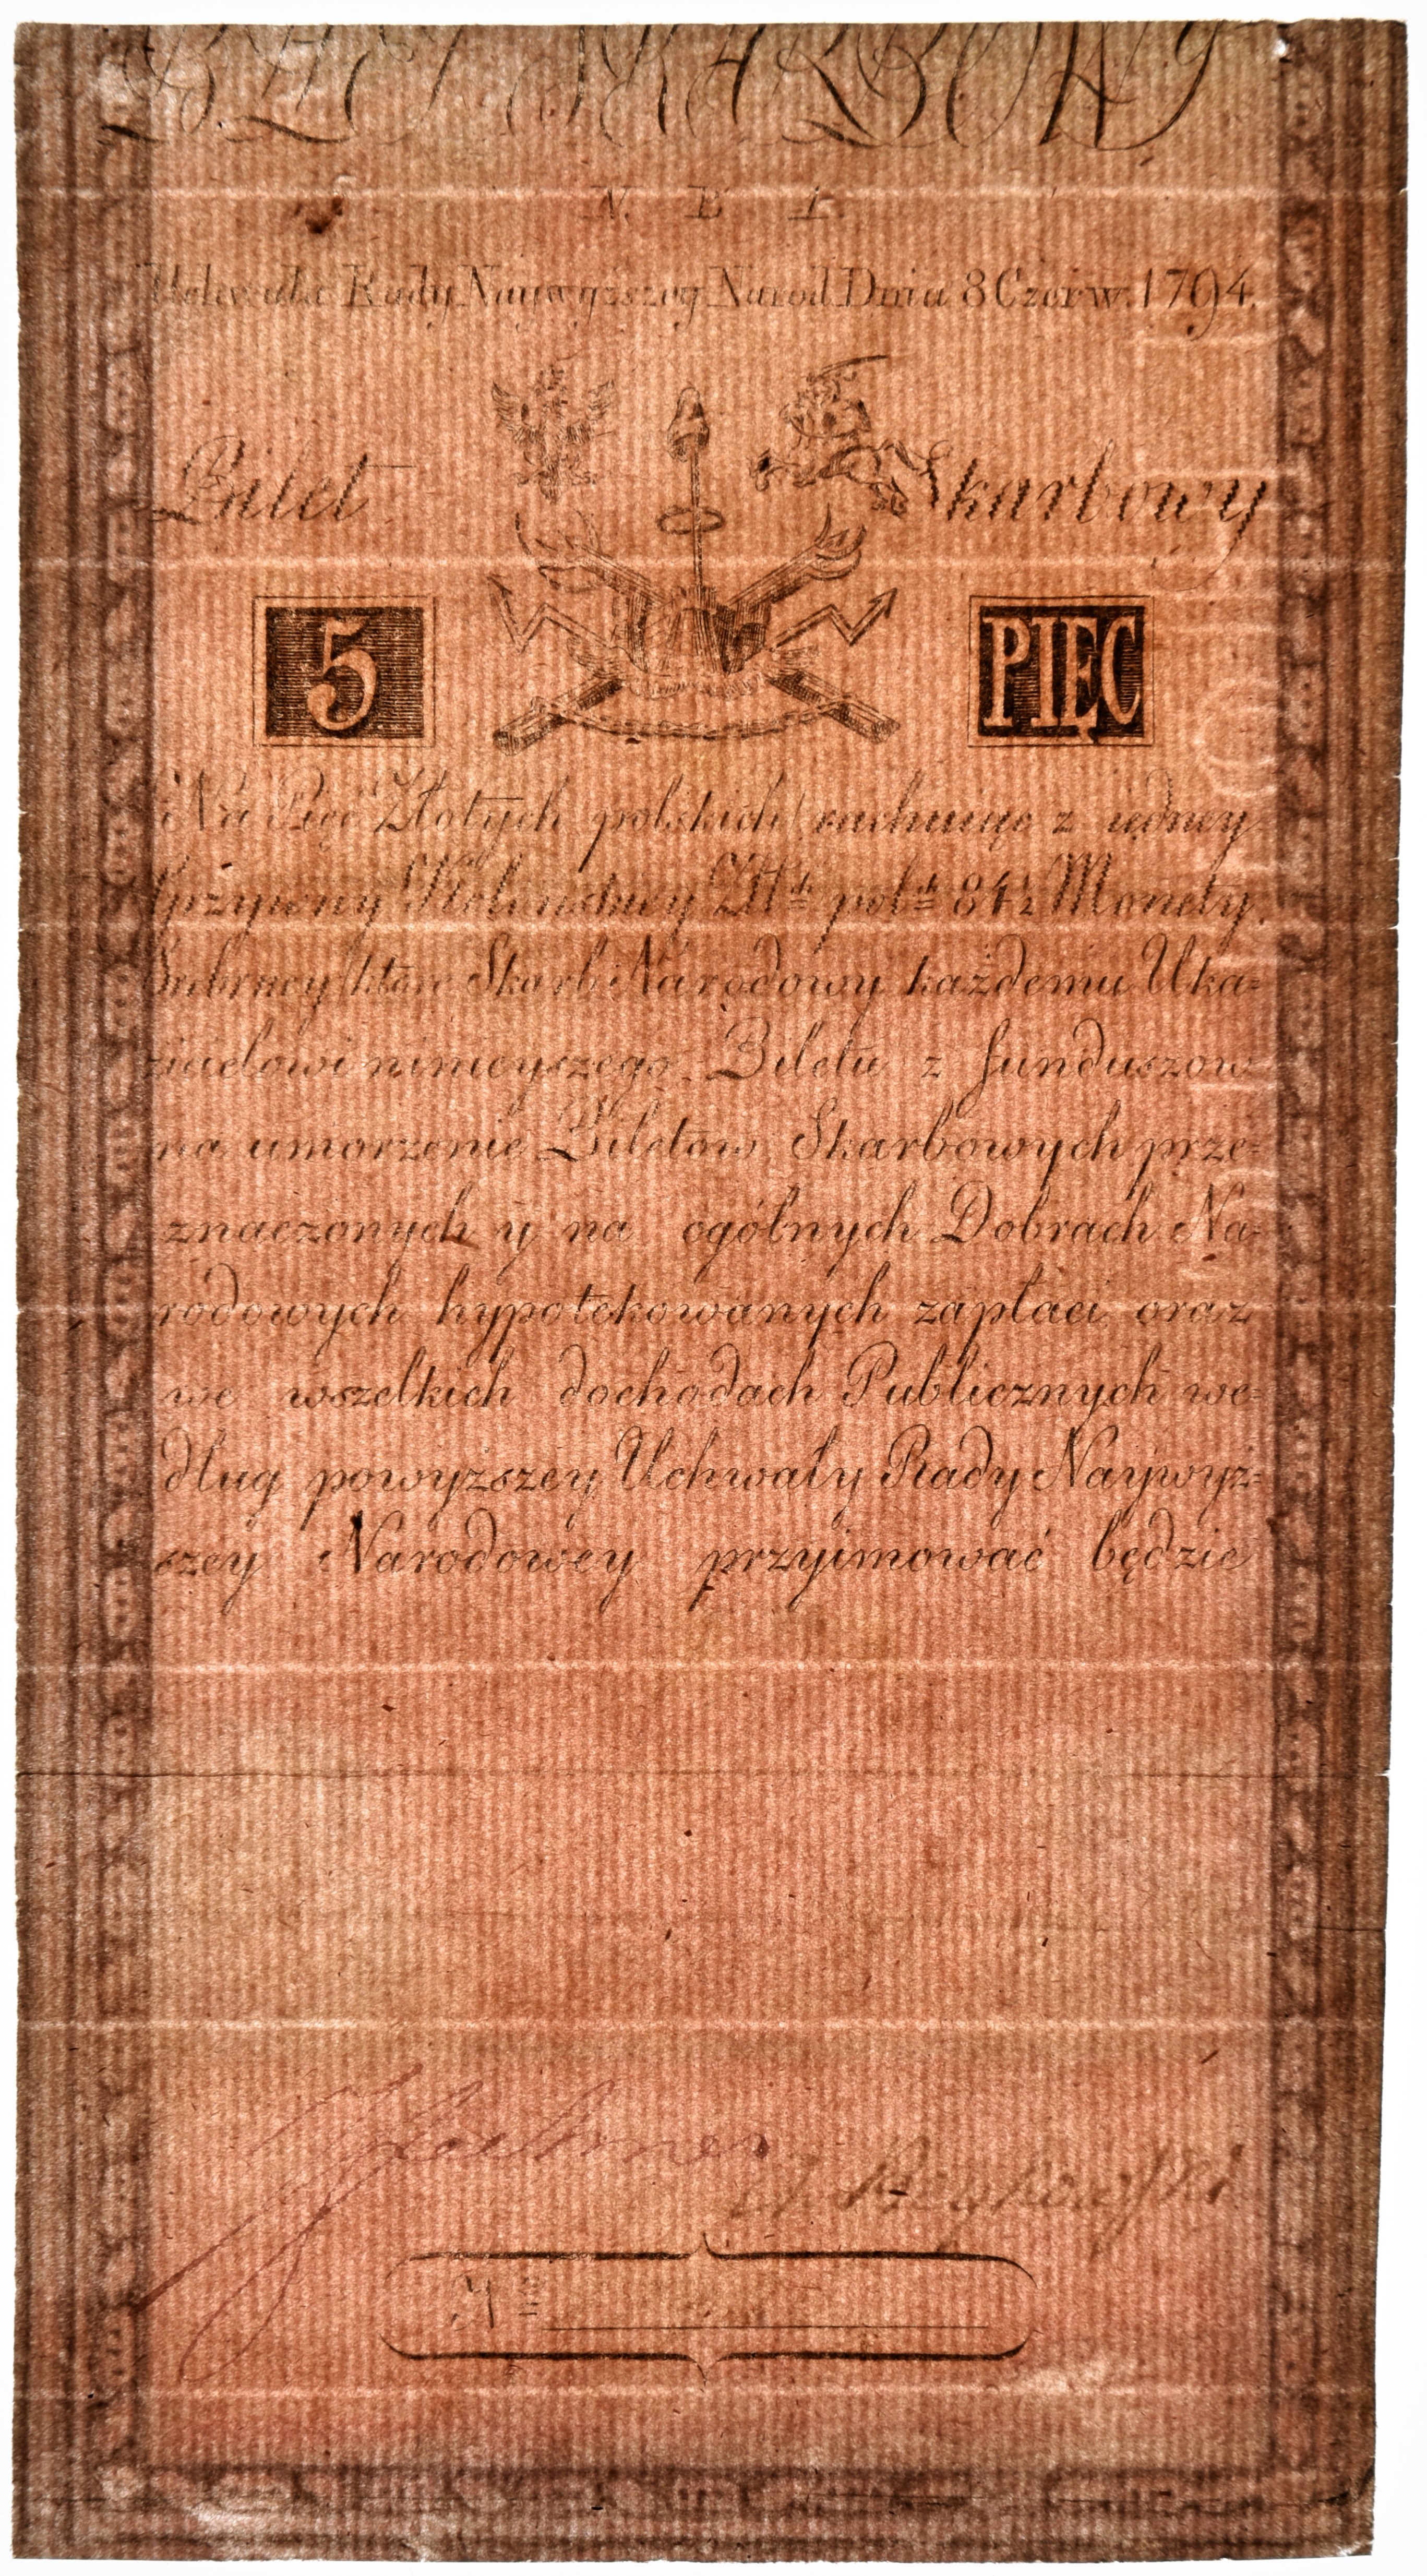 BILET SKARBOWY
N. B 1.
Uchwała Rady Naywyższey Narod. Dnia 8 Czerw. 1794.
Bilet Skarbowy
5 PIĘC
Na Pięć Złotych polskich rachuiąc z iedney
Grzywny Kolonskiey Złł^ch pol^ch 84½ Monety
Srebrney które Skarb Narodowy każdemu Uka=
zicielowi ninieyszego Biletu z funduszow
na umorzenie Biletow Skarbowych prze=
znaczonych y na ogólnych Dobrach Na=
rodowych hypotekowanych zapłaci oraz
we wszelkich dochodach Publicznych we=
dług powyzszey Uchwały Rady Naywyż=
szey Narodowey przyimować będzie
N^o